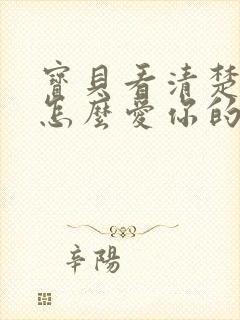 寶貝看清楚
怎麼愛你的
辛陽